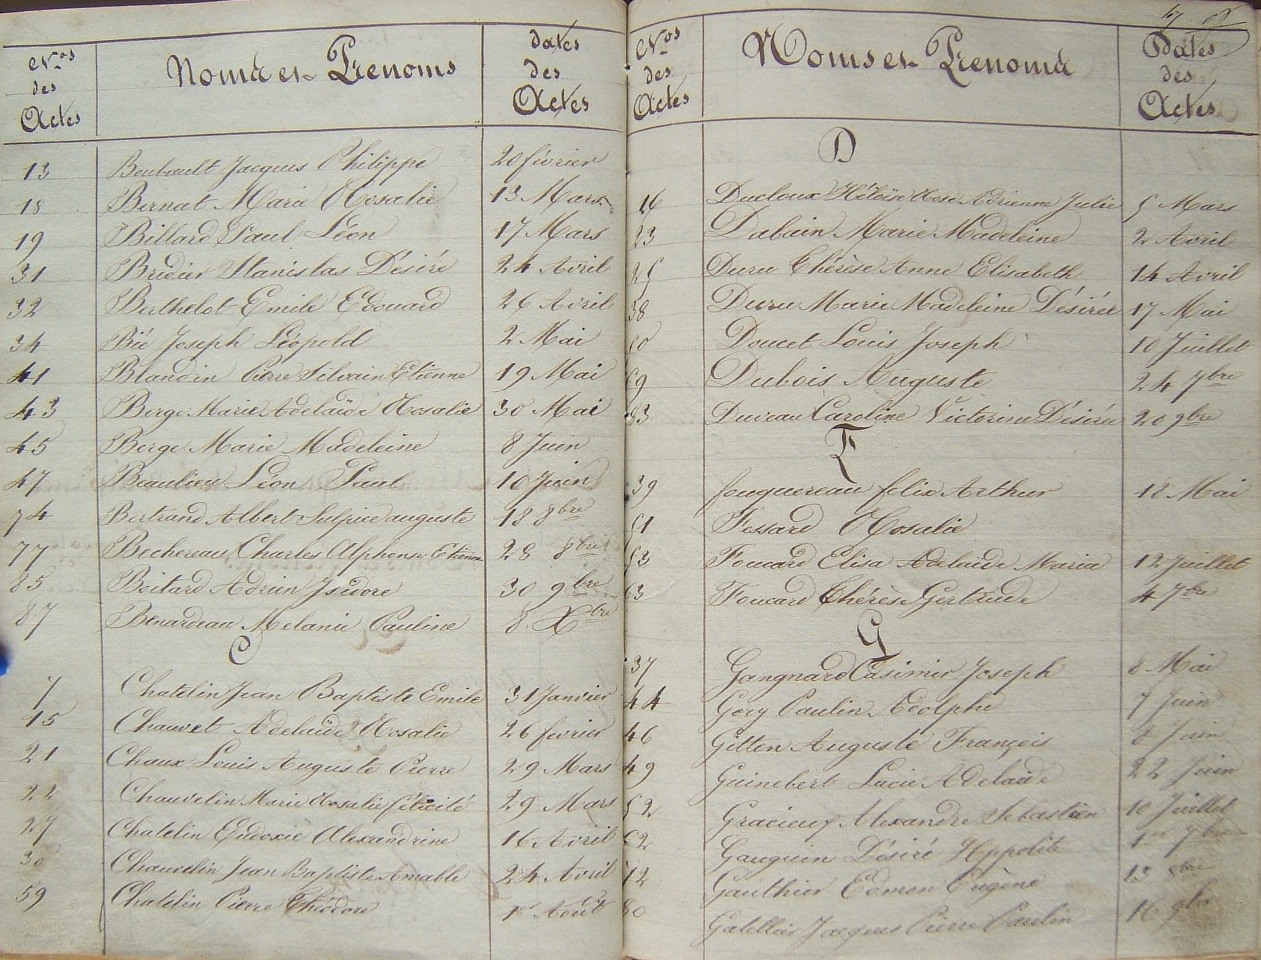 Nos des Actes Noms et Prenoms dates des Actes
13 Beubault Jacques Philippe 20 février
18 Bernat Marie Rosalie 13 Mars
19 Billard Paul Léon 17 Mars
31 Bridier Stanislas Désiré 24 Avril
32 Berthelot Emile Edouard 26 Avril
34 Bié Joséph Léopold 2 Mai
41 Blandin Pierre Silvain Etienne 19 Mai
43 Berge Marie Adelaïde Rosalie 30 Mai
45 Berge Marie Madeleine 8 Juin
47 Beaulieu Léon Paul 10 Juin
74 Bertrand Albert Sulpice auguste 18 8bre
77 Bechereau Charles Alphonse Etienne 28 8bre
85 Boitard Adrien Isidore 30 9bre
87 Benardeau Melanie Pauline 8 Xbre
C
7 Chatelin Jean Baptiste Emile 31 Janvier
15 Chauvet Adelaïde Rosalie 26 février
21 Chaux Louis Auguste Pierre 29 Mars
22 Chauvelin Marie Rosalie félicité 29 Mars
27 Chatelin Eudoxie Alexandrine 16 Avril
30 Chauvelin Jean Baptiste Amable 24 Avril
59 Chatelin Pierre Théodore 1er Août
Nos des Actes Noms et Prenoms Dates des Actes
D
16 Ducloux Héloïse Rose Adrienne Julie 5 Mars
23 Dabain Marie Madeleine 2 Avril
25 Duru Thérèse Anne Elisabeth 14 Avril
38 Duru Marie Madeleine Désirée 17 Mai
50 Doucet Louis Joseph 10 Juillet
69 Dubois Auguste 24 7bre
83 Duveau Caroline Victorine Désirée 20 9bre
F
39 fouquereau felix Arthur 18 Mai
51 Fessard Rosalie
53 Foucard Elisa Adelaide Maria 12 Juillet
63 Foucard Thérèse Gertrude 4 7bre
G
37 Gangnard Casimir Joseph 8 Mai
44 Gery Paulin Adolphe 7 Juin
46 Gitten Auguste François 8 Juin
49 Guinebert Lucie Adelaïde 22 Juin
52 Gracieux Alexandre Sebastien 10 Juillet
62 Gauguin Désiré Hippolite 1er 7bre
72 Gauthier Edmon Eugène 13 8bre
80 Jacques Pierre Paulin 16 9bre